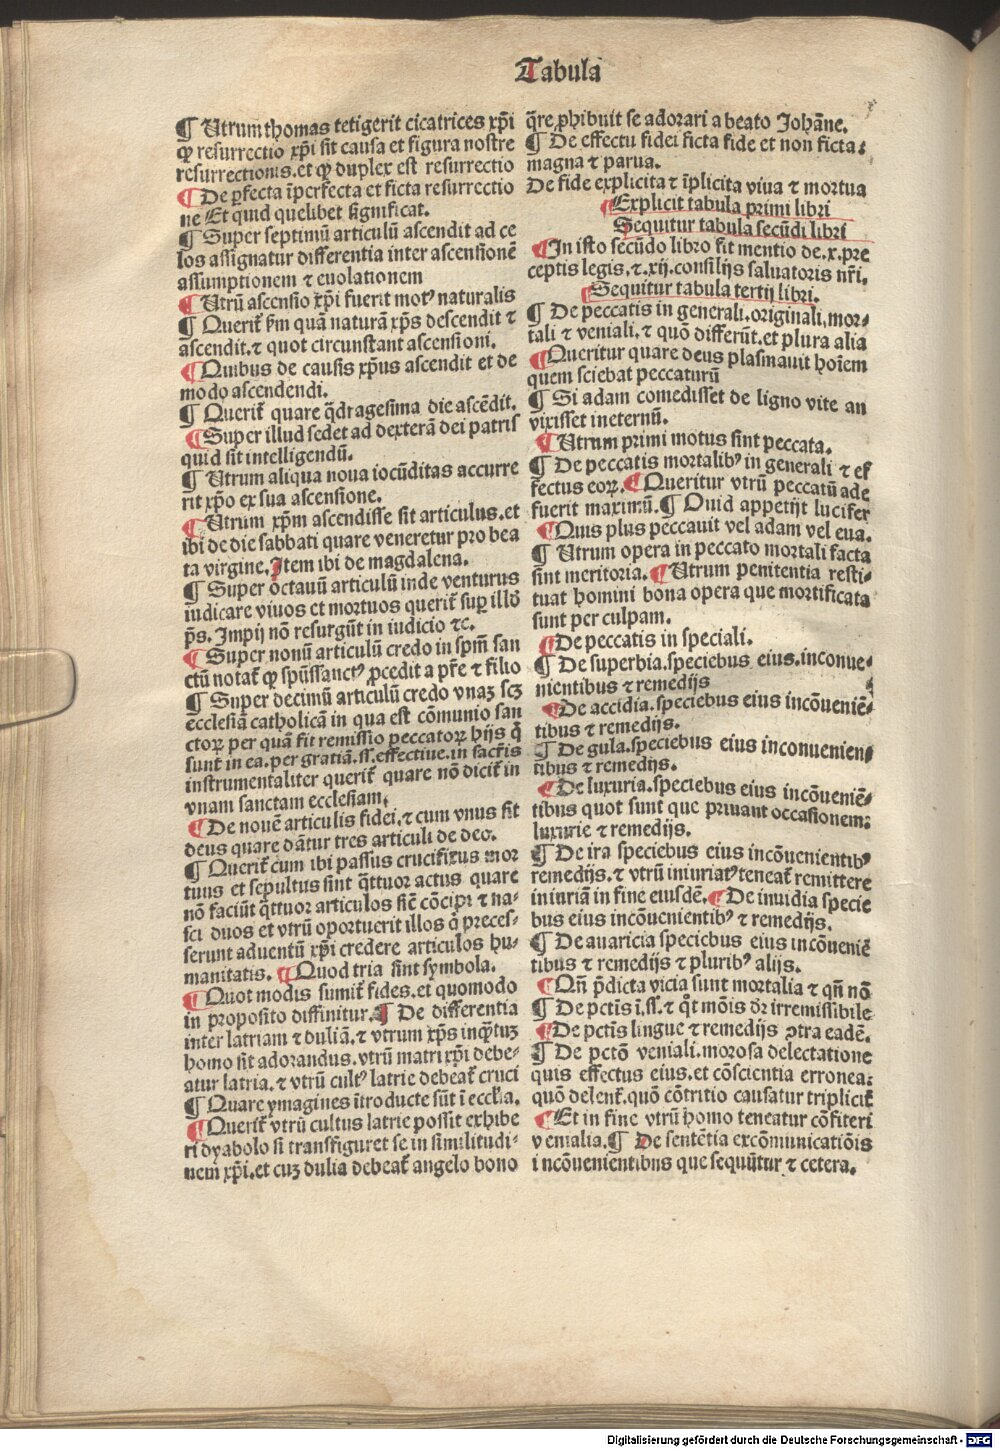 Tabula
¶ Utrum thomas tetigerit cicatrices xp̄i
qꝫ resurrectio xp̄i sit causa et figura nostre
resurrectionis.et qꝫ duplex est resurrectio
¶ De ꝑfecta īperfecta et ficta resurrectio
ne Et quid quelibet significat.
¶ Super septimū articulū ascendit ad ce
los assignatur differentia inter ascensionē
assumptionem ⁊ euolationem
¶ Utrū ascensio xp̄i fuerit motꝰ naturalis
¶ Querit̄ p̄m quā naturā xp̄s descendit ⁊
ascendit.⁊ quot circunstant ascensioni.
¶ Quibus de causis xp̄us ascendit et de
modo ascendendi.
¶ Querit̄ quare q̄dragesima die ascēdit.
¶ Super illud sedet ad dexterā dei patris
quid sit intelligendū.
¶ Utrum aliqua noua iocūditas accurre
rit xp̄o ex sua ascensione.
¶ Utrum xp̄m ascendisse sit articulus.et
ibi de die sabbati quare veneretur pro bea
ta virgine.Item ibi de magdalena.
¶ Super octauū articulū inde venturus
iudicare viuos et mortuos querit̄ suꝑ illd̄
p̄s. Impij nō resurgūt in iudicio ⁊c.
¶ Super nonū articulū credo in sp̄m san
ctū notat̄ qꝫ spūssanctꝰ ꝓcedit a pr̄e ⁊ filio
¶ Super decimū articulū credo vnaꝫ scꝫ
ecclesiā catholicā in qua est cōmunio san
ctoꝝ per quā fit remissio peccatoꝝ hijs q̄
sunt in ea.per gratiā.ss.effectiue.in sacr̄is
instrumentaliter querit̄ quare nō dicit̄ in
vnam sanctam ecclesiam.
¶ De nouē articulis fidei.⁊ cum vnus sit
deus quare dātur tres articuli de deo.
¶ Querit̄ cum ibi passus crucifixus mor
tuus et sepultus sint q̄ttuor actus quare
nō faciūt q̄ttuor articulos sic̄ cōcipi ⁊ na-
sci duos et vtrū oportuerit illos q̄ preces-
serunt aduentū xp̄i credere articulos hu-
manitatis. ¶ Quod tria sint symbola.
¶ Quot modis sumit̄ fides.et quomodo
in proposito diffinitur.¶ De differentia
inter latriam ⁊ duliā.⁊ vtrum xp̄s inq̄tuꝫ
homo sit adorandus.vtrū matri xp̄i debe-
atur latria.⁊ vtrū cultꝰ latrie debeat̄ cruci
¶ Quare ymagines ītroducte sūt ī eccl̄ia.
¶ Querit̄ vtrū cultus latrie possit exhibe
ri dyabolo si transfiguret se in similitudi-
nem xp̄i.et cuꝫ dulia debeat̄ angelo bono
q̄re ꝓhibuit se adorari a beato Johāne.
¶ De effectu fidei ficta fide et non ficta:
magna ⁊ parua.
De fide explicita ⁊ īplicita viua ⁊ mortua
¶ Explicit tabula primi libri
Sequitur tabula secūdi libri
¶ In isto secūdo libro fit mentio de.x.pre
ceptis legis.⁊.xij.consilijs saluatoris nr̄i.
¶ Sequitur tabula tertij libri.
¶ De peccatis in generali.originali.mor-
tali ⁊ veniali.⁊ quō differūt.et plura alia
¶ Queritur quare deus plasmauit hoīem
quem sciebat peccaturū
¶ Si adam comedisset de ligno vite an
vixisset ineternū.
¶ Utrum primi motus sint peccata.
¶ De peccatis mortalibꝰ in generali ⁊ ef
fectus eoꝝ.¶ Queritur vtrū peccatū ade
fuerit maximū.¶ Quid appetijt lucifer
¶ Quis plus peccauit vel adam vel eua.
¶ Utrum opera in peccato mortali facta
sint meritoria. ¶ Utrum penitentia resti-
tuat homini bona opera que mortificata
sunt per culpam.
¶ De peccatis in speciali.
¶ De superbia.speciebus eius.inconue-
nientibus ⁊ remedijs
¶ De accidia.speciebus eius incōueniē-
tibus ⁊ remedijs.
¶ De gula.speciebus eius inconuenien-
tibus ⁊ remedijs.
¶ De luxuria.speciebus eius incōueniē-
tibus quot sunt que priuant occasionem:
luxurie ⁊ remedijs.
¶ De ira speciebus eius incōuenientibꝰ
remedijs.⁊ vtrū iniuriatꝰ teneat̄ remittere
iniuriā in fine eiusdē.¶ De inuidia specie
bus eius incōuenientibꝰ ⁊ remedijs.
¶ De auaricia speciebus eius incōueniē
tibus ⁊ remedijs ⁊ pluribꝰ alijs.
¶ Qn̄ p̄dicta vicia sunt mortalia ⁊ qn̄ nō
¶ De pctīs ī.ss.⁊ q̄t mōis dr̄ irremissibile
¶ De pctīs lingue ⁊ remedijs ꝯtra eadē.
¶ De pctō veniali.morosa delectatione
quis effectus eius.et cōscientia erronea:
quō delent̄.quō cōtritio causatur triplicit̄
¶ Et in fine vtrū homo teneatur cōfiteri
venialia.¶ De sentētia excōmunicatiōis
incōuenientibus que sequūtur ⁊ cetera.
Digitalisierung gefördert durch die Deutsche Forschungsgemeinschaft - DFG